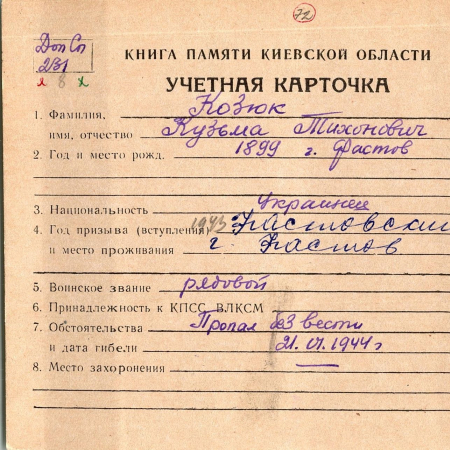 72
Доп Сп
231
л 8 х
КНИГА ПАМЯТИ КИЕВСКОЙ ОБЛАСТИ
УЧЕТНАЯ КАРТОЧКА
1. Фамилия, Козюк
имя, отчество Кузьма Тихонович
2. Год и место рожд. 1899 г. Фастов
3. Национальность Украинец
4. Год призыва (вступления) 1943 Фастовский
и место проживания г Фастов
5. Воинское звание рядовой
6. Принадлежность к КПСС, ВЛКСМ
7. Обстоятельства Пропал без вести
и дата гибели 21.01.1944 г
8. Место захоронения —